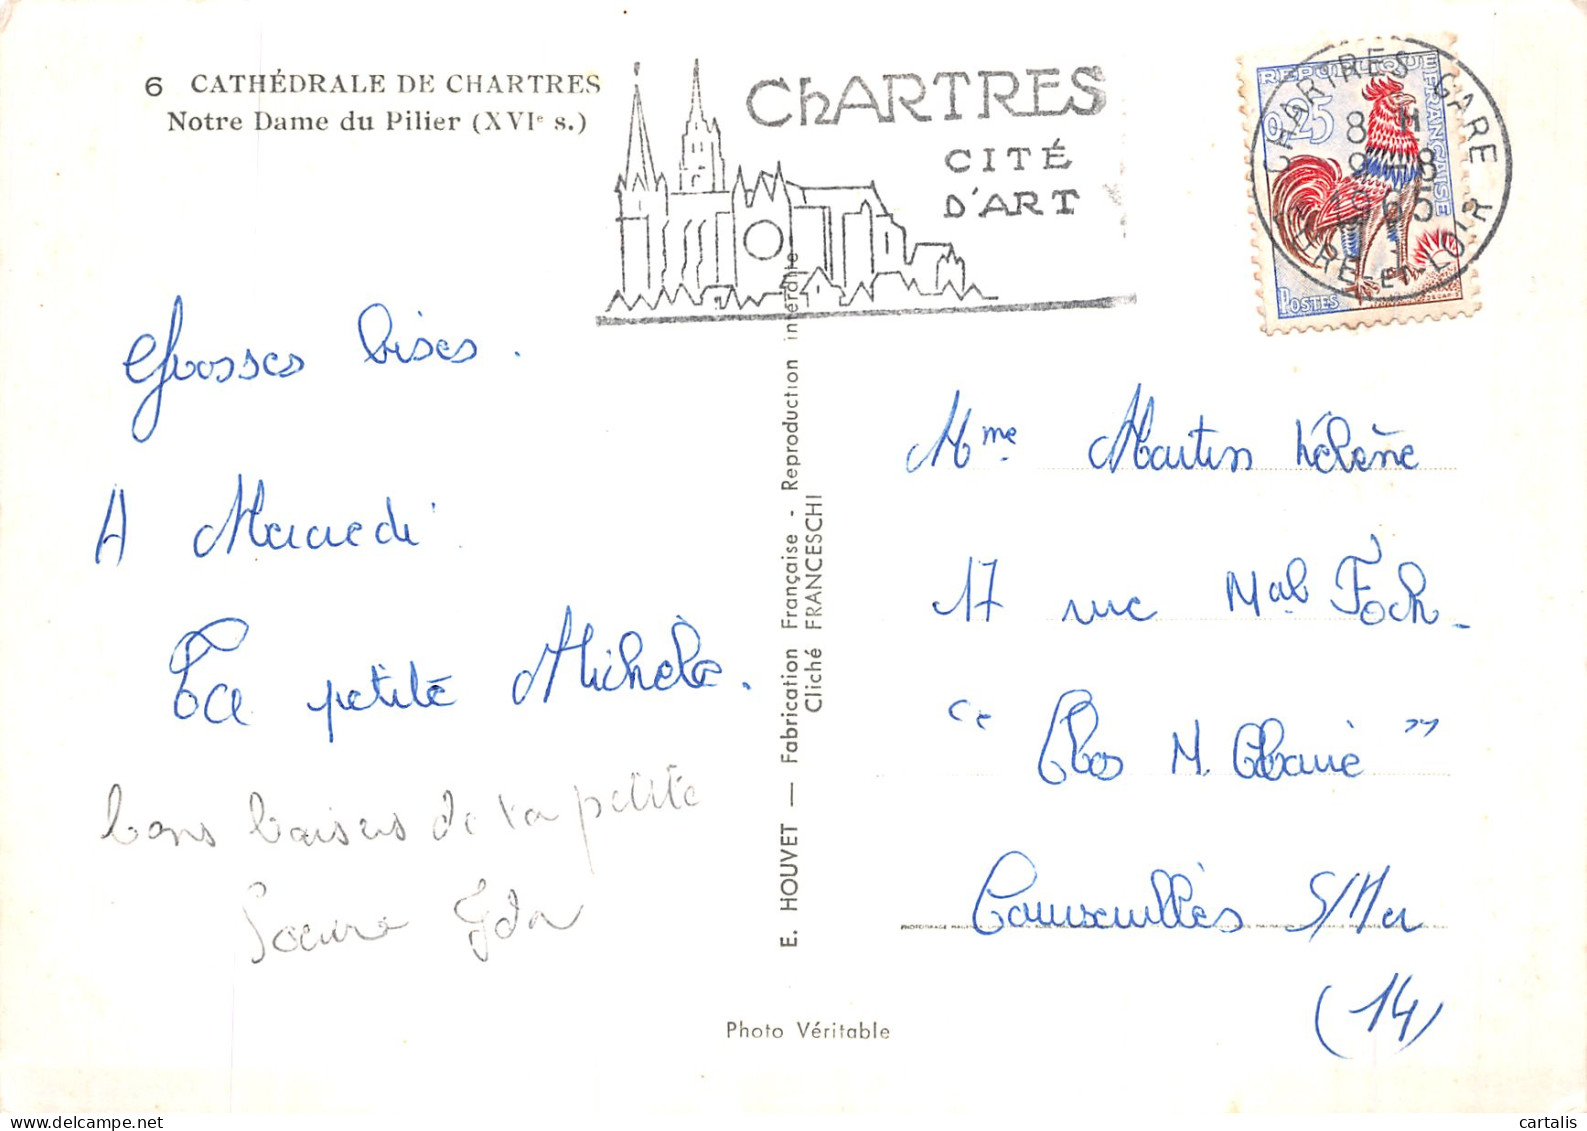 6 CATHÉDRALE DE CHARTRES
Notre Dame du Pilier (XVIe s.)
ChARTRES
CITÉ
D'ART
CHARTRES GARE
8 H
9 - 8
1965
EURE-ET-LOIR
RÉPUBLIQUE FRANÇAISE
0,25
POSTES
Grosses bises.
A Mercredi
Ta petite Michèle.
bons baisers de ta petite
Soeure Ida
E. HOUVET — Fabrication Française - Reproduction interdite
Cliché FRANCESCHI
Mme Martin Hélène
17 rue Mal Foch -
"Clos M. Claire"
Courseulles S/Mer
(14)
Photo Véritable
cartalis